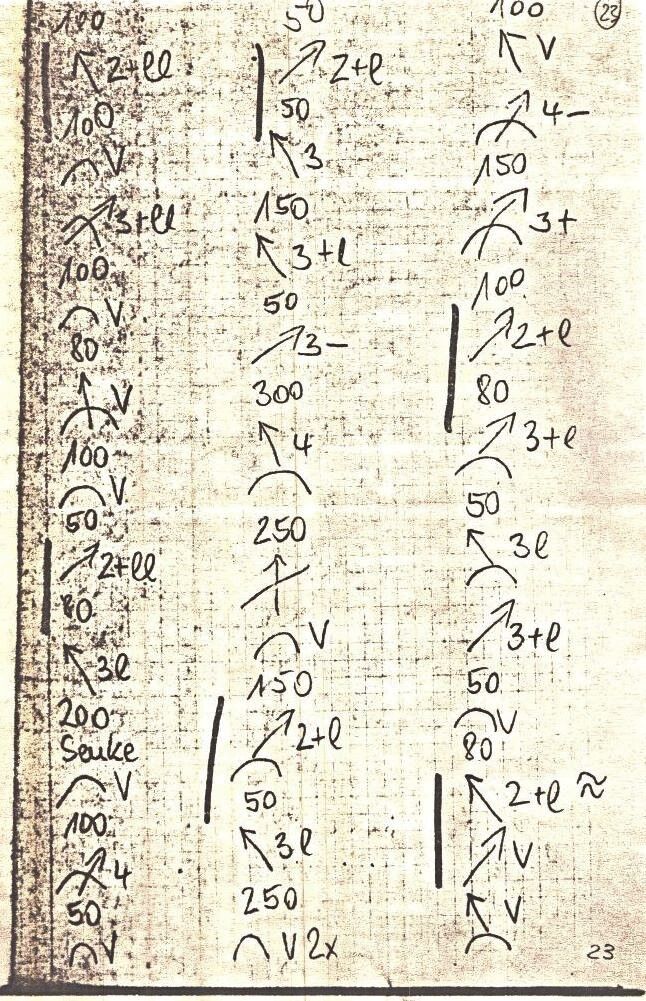 100
2+ll
100
V
3+ll
100
V
80
V
100
V
50
2+ll
80
3l
200
Senke
V
100
4
50
V
50
2+l
50
3
150
3+l
50
3-
300
4
250
V
150
2+l
50
3l
250
V 2x
100
V
4-
150
3+
100
2+l
80
3+l
50
3l
3+l
50
V
80
2+l ≈
V
V
23
23